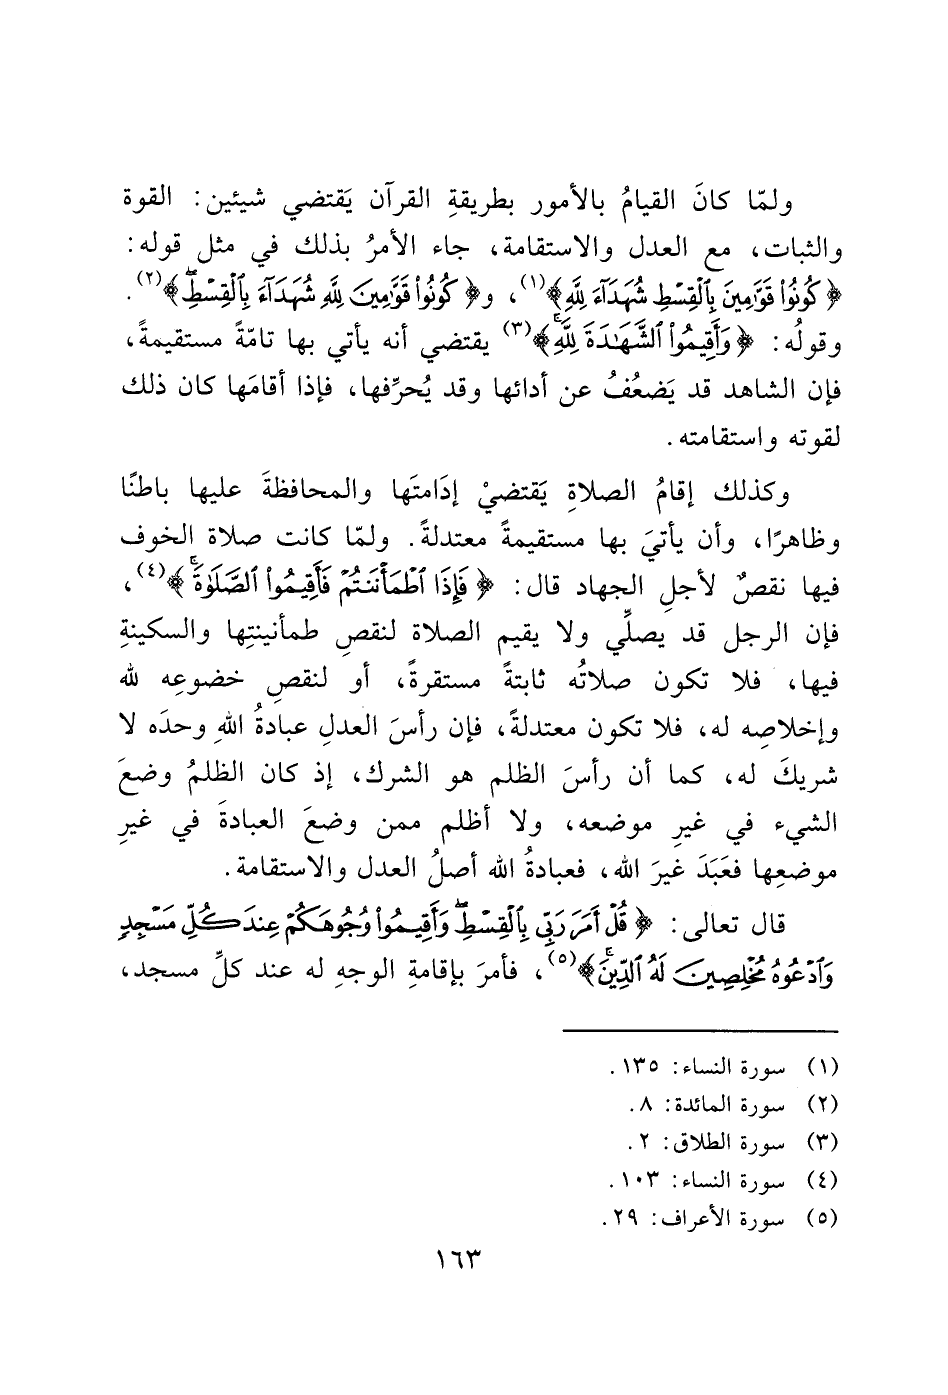 ولمّا كانَ القيامُ بالأمور بطريقةِ القرآن يَقتضي شيئين: القوة
والثبات، مع العدل والاستقامة، جاء الأمرُ بذلك في مثل قوله:
﴿كُونُوا۟ قَوَّٰمِينَ بِٱلْقِسْطِ شُهَدَآءَ لِلَّهِ﴾(١)، و﴿كُونُوا۟ قَوَّٰمِينَ لِلَّهِ شُهَدَآءَ بِٱلْقِسْطِۖ﴾(٢).
وقولُه: ﴿وَأَقِيمُوا۟ ٱلشَّهَٰدَةَ لِلَّهِۚ﴾(٣) يقتضي أنه يأتي بها تامّةً مستقيمةً،
فإن الشاهد قد يَضعُفُ عن أدائها وقد يُحرِّفها، فإذا أقامَها كان ذلك
لقوته واستقامته.
وكذلك إقامُ الصلاةِ يَقتضيْ إدَامتَها والمحافظةَ عليها باطنًا
وظاهرًا، وأن يأتيَ بها مستقيمةً معتدلةً. ولمّا كانت صلاة الخوف
فيها نقصٌ لأجلِ الجهاد قال: ﴿فَإِذَا ٱطْمَأْنَنتُمْ فَأَقِيمُوا۟ ٱلصَّلَوٰةَۚ﴾(٤)،
فإن الرجل قد يصلِّي ولا يقيم الصلاة لنقصِ طمأنينتِها والسكينةِ
فيها، فلا تكون صلاتُه ثابتةً مستقرةً، أو لنقصِ خضوعِه لله
وإخلاصِه له، فلا تكون معتدلةً، فإن رأسَ العدلِ عبادةُ اللهِ وحدَه لا
شريكَ له، كما أن رأسَ الظلم هو الشرك، إذ كان الظلمُ وضعَ
الشيء في غيرِ موضعه، ولا أظلم ممن وضعَ العبادةَ في غيرِ
موضعِها فعَبَدَ غيرَ الله، فعبادةُ الله أصلُ العدل والاستقامة.
قال تعالى: ﴿قُلْ أَمَرَ رَبِّى بِٱلْقِسْطِۖ وَأَقِيمُوا۟ وُجُوهَكُمْ عِندَ كُلِّ مَسْجِدٍ
وَٱدْعُوهُ مُخْلِصِينَ لَهُ ٱلدِّينَۚ﴾(٥)، فأمرَ بإقامةِ الوجهِ له عند كلِّ مسجد،
(١) سورة النساء: ١٣٥.
(٢) سورة المائدة: ٨.
(٣) سورة الطلاق: ٢.
(٤) سورة النساء: ١٠٣.
(٥) سورة الأعراف: ٢٩.
١٦٣